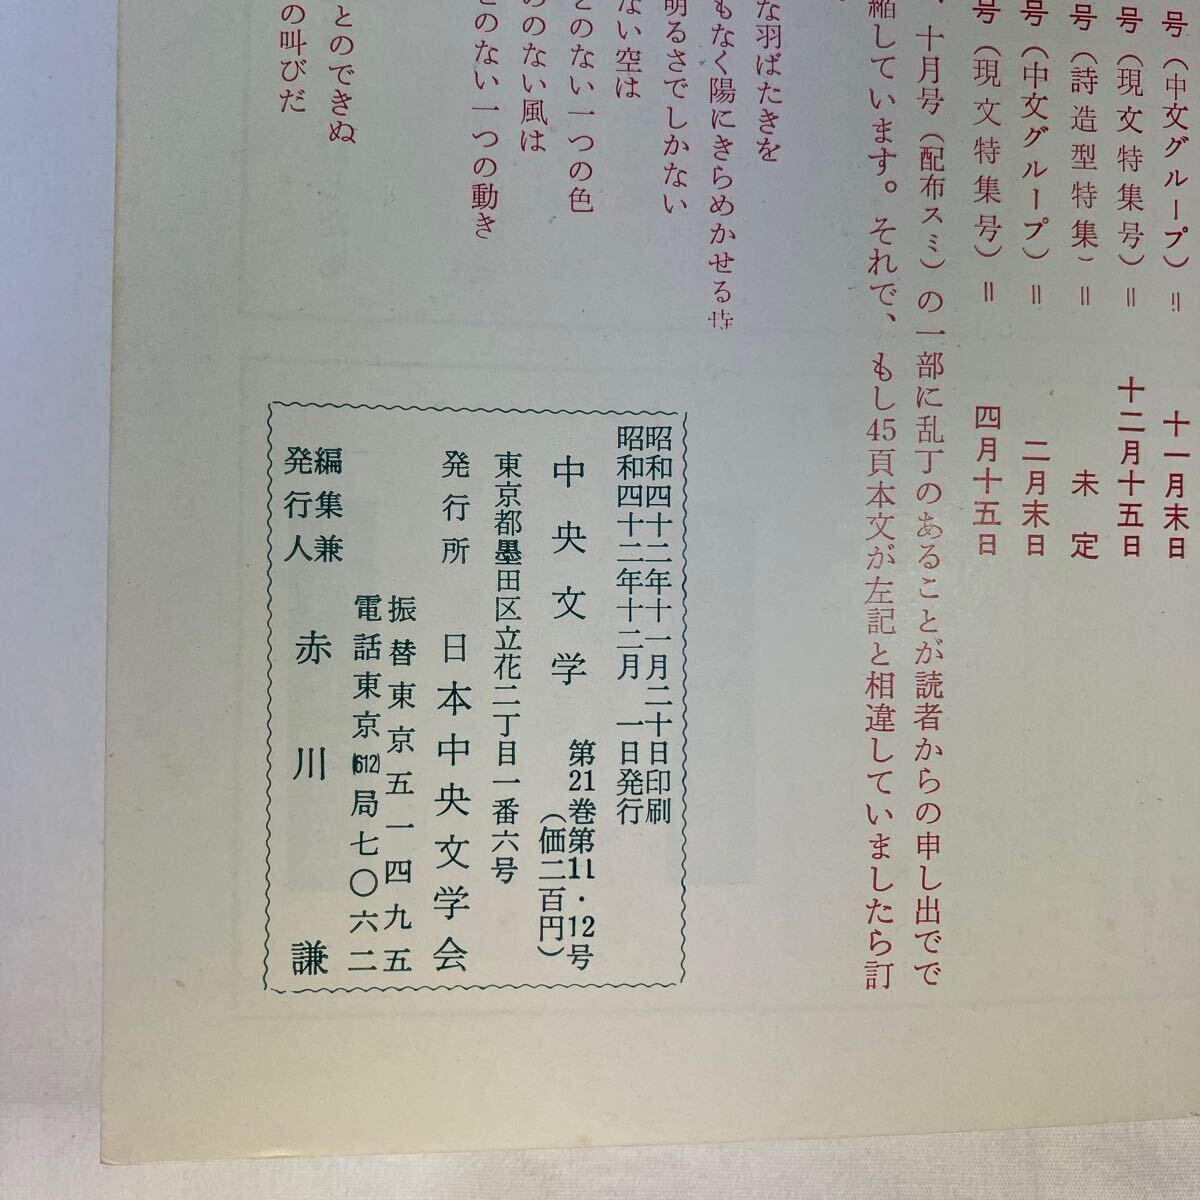 号(中文グループ)=十一月末日
号(現文特集号)=十二月十五日
号(詩造型特集)=未定
号(中文グループ)=二月末日
号(現文特集号)=四月十五日
、十月号(配布スミ)の一部に乱丁のあることが読者からの申し出でで
縮しています。それで、もし45頁本文が左記と相違していましたら訂
な羽ばたきを
もなく陽にきらめかせる時
明るさでしかない
ない空は
とのない一つの色
ののない風は
とのない一つの動き
とのできぬ
の叫びだ
昭和四十二年十一月二十日印刷
昭和四十二年十二月一日発行
中央文学 第21巻第11・12号
(価二百円)
東京都墨田区立花二丁目一番六号
発行所 日本中央文学会
振替東京五一四九五
電話東京(612)局七〇六二
編集兼
発行人 赤川謙